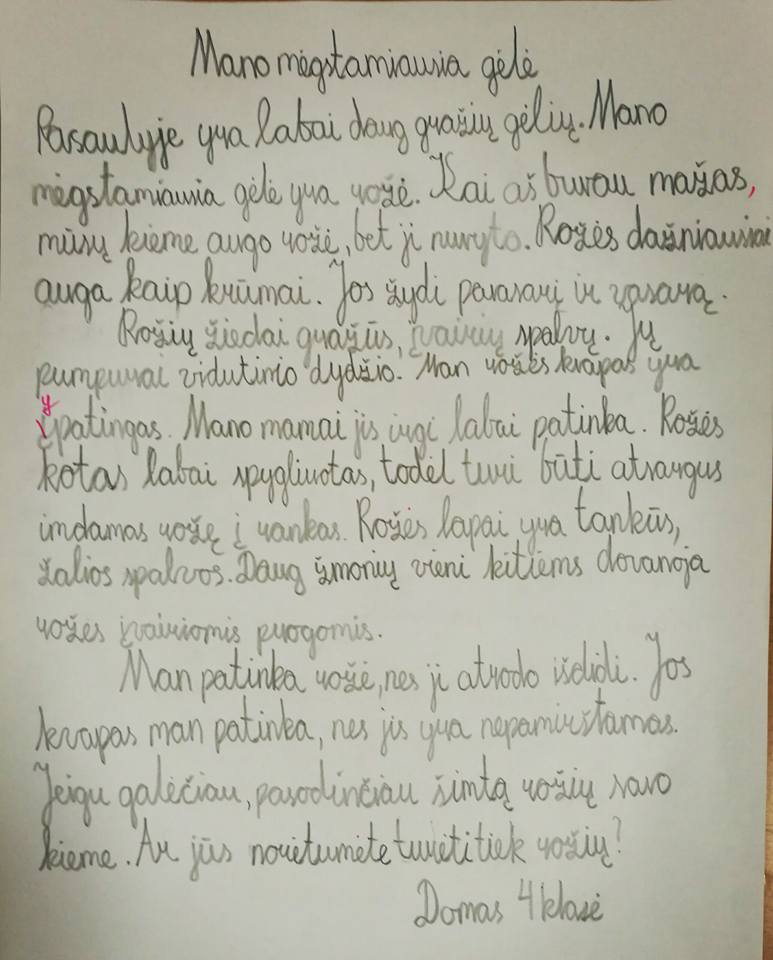 Mano mėgstamiausia gėlė
Pasaulyje yra labai daug gražių gėlių. Mano
mėgstamiausia gėlė yra rožė. Kai aš buvau mažas,
mūsų kieme augo rožė, bet ji nuvyto. Rožės dažniausiai
auga kaip krūmai. Jos žydi pavasarį ir vasarą.
Rožių žiedai gražūs, įvairių spalvų. Jų
pumpurai vidutinio dydžio. Man rožės kvapas yra
y
įpatingas. Mano mamai jis irgi labai patinka. Rožės
kotas labai spygliuotas, todėl turi būti atsargus
imdamas rožę į rankas. Rožės lapai yra tankūs,
žalios spalvos. Daug žmonių vieni kitiems dovanoja
rožes įvairiomis progomis.
Man patinka rožė, nes ji atrodo išdidi. Jos
kvapas man patinka, nes jis yra nepamirštamas.
Jeigu galėčiau, pasodinčiau šimtą rožių savo
kieme. Ar jūs norėtumėte turėti tiek rožių?
Domas 4 klasė